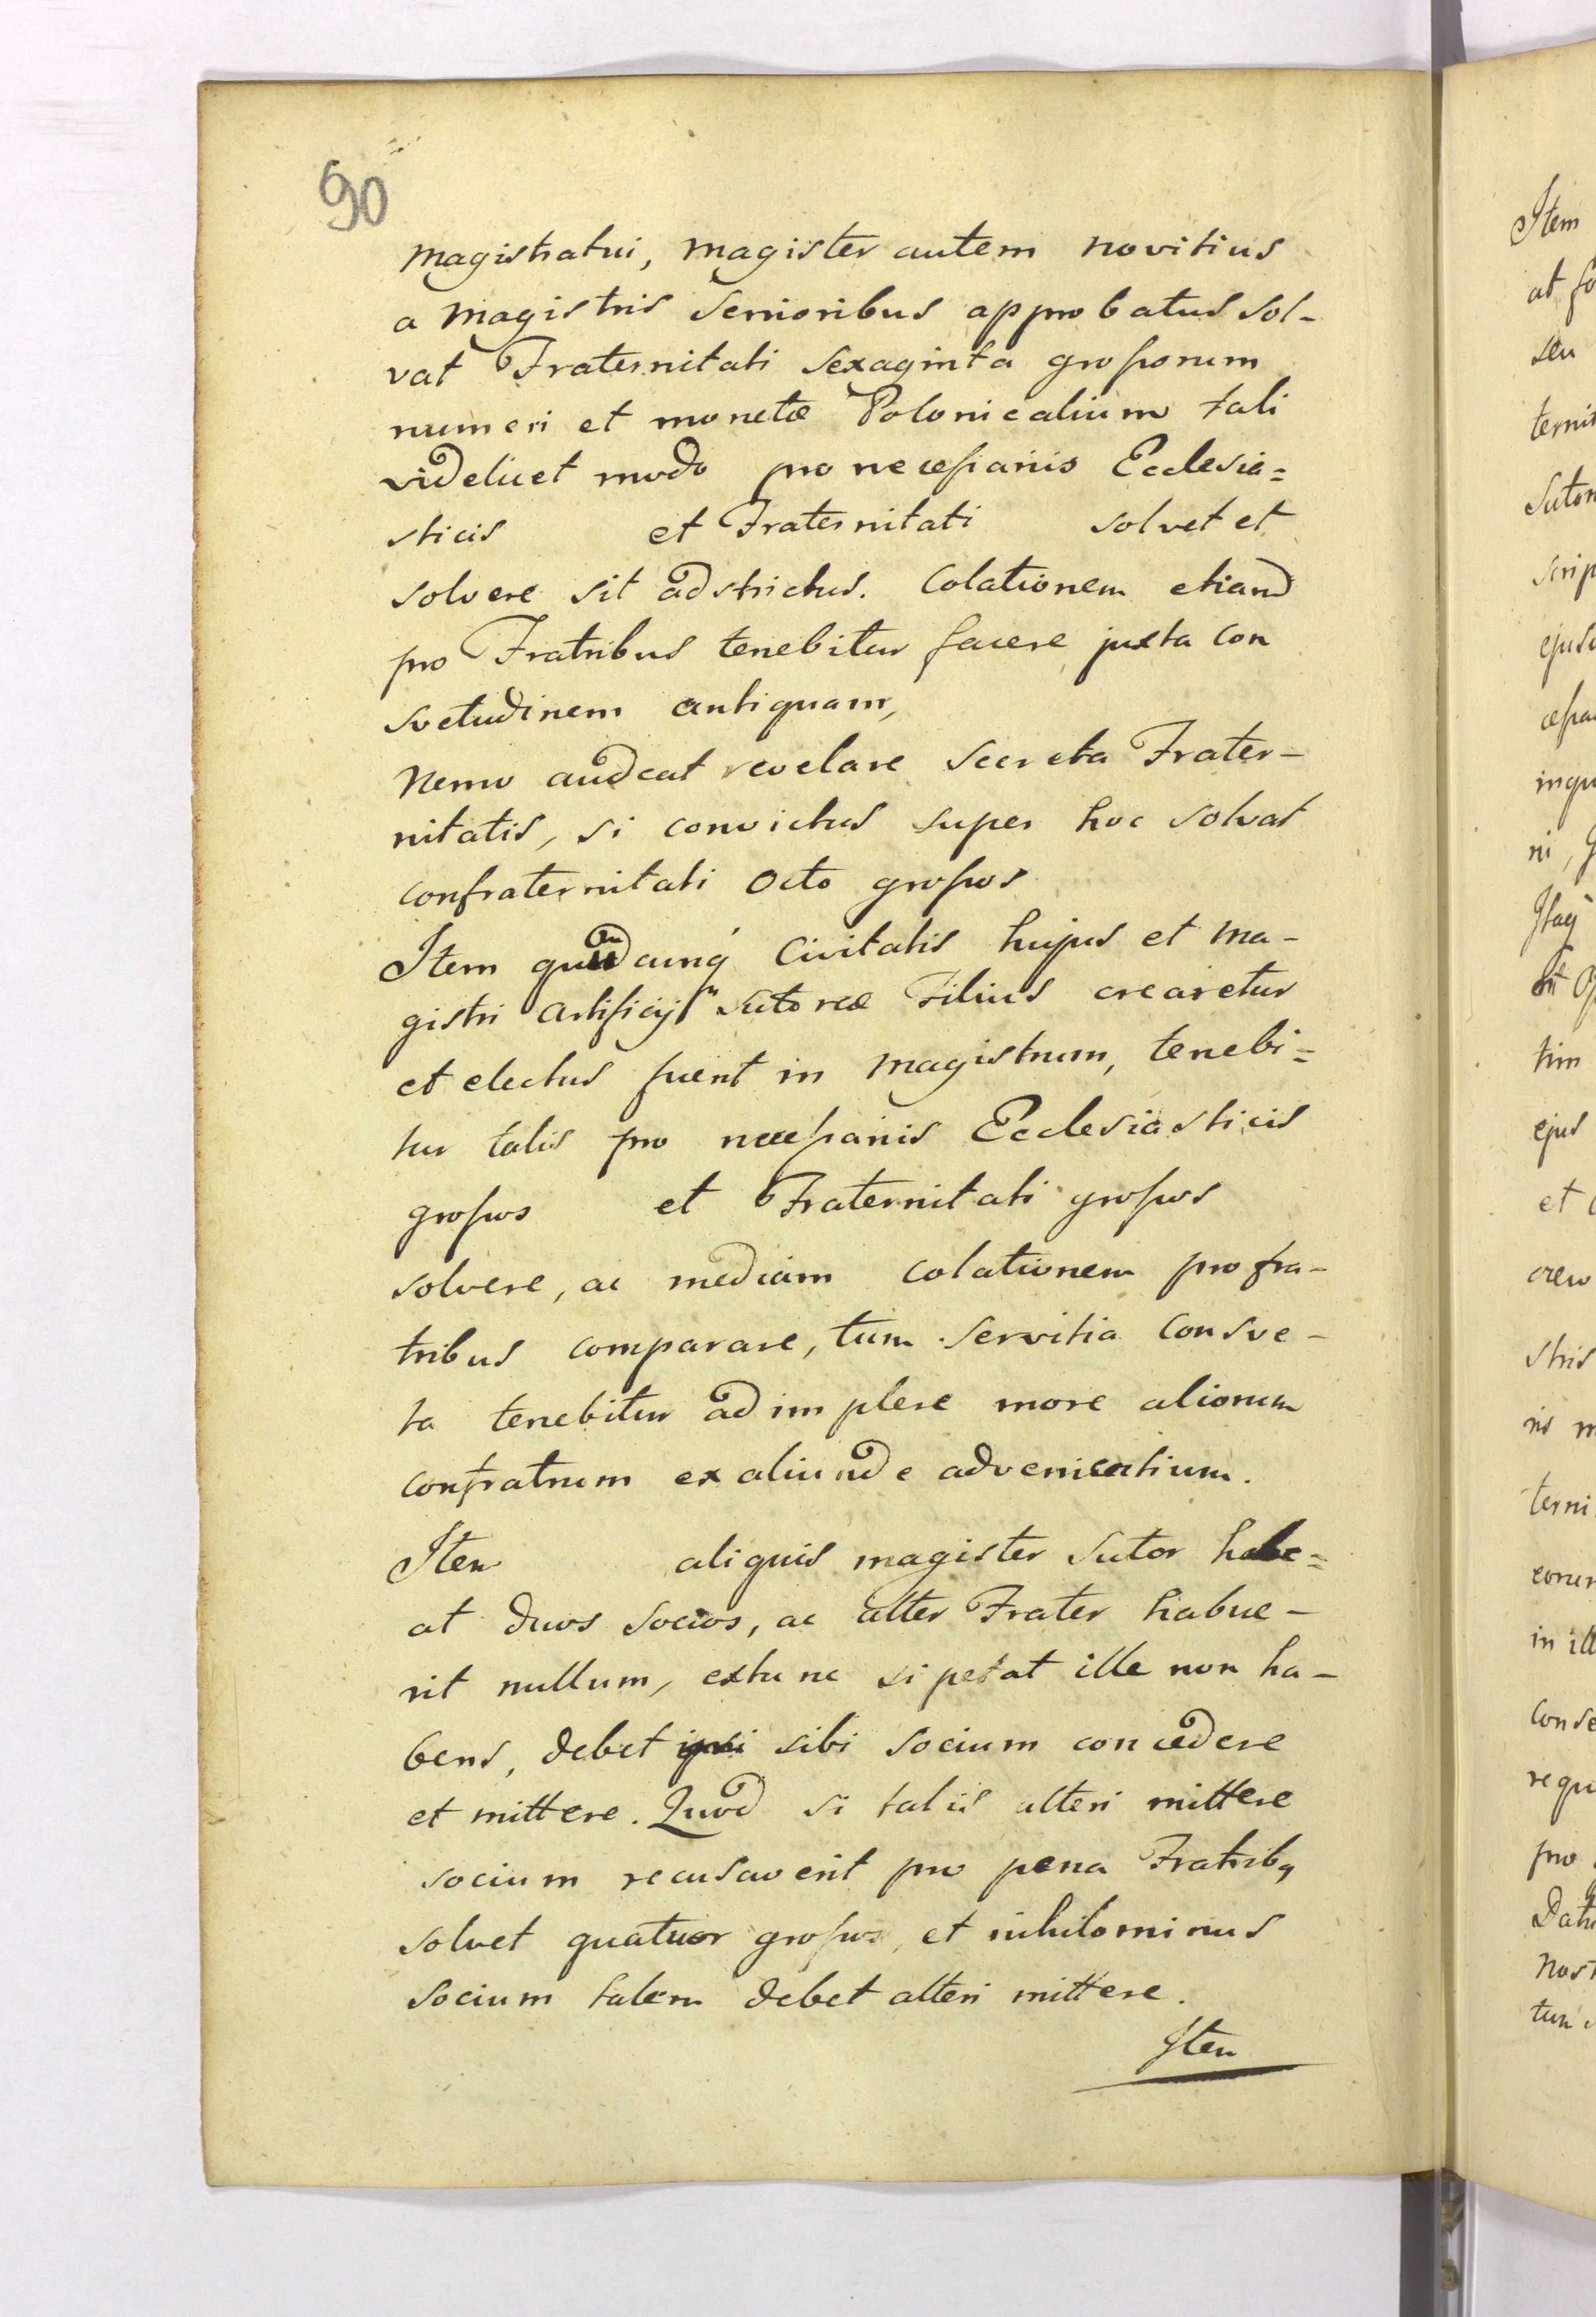 90
Magistratui, Magister autem novitius
a Magistris Senioribus approbatus sol-
vat Fraternitati Sexaginta grossorum
numeri et monetæ Polonicalium tali
videlicet modo pro necessariis Ecclesia=
sticis et Fraternitati solvet et
solvere sit adstrictus. Colationem etiam
pro Fratribus tenebitur facere juxta Con
svetudinem antiquam,
Nemo audeat revelare Secreta Frater-
nitatis, si convictus super hoc solvat
confraternitati Octo grossos
Item Civitatis hujus et Ma-
gistri Artificij Sutoreæ Filius crearetur
et electus fuerit in Magistrum, tenebi=
tur talis pro necessariis Ecclesiasticis
grossos et Fraternitati grossos
solvere, ac mediam colationem pro fra-
tribus comparare, tum Servitia Consve-
ta tenebitur adimplere more aliorum
confratrum ex aliunde advenientium.
Item aliquis magister Sutor habe=
at duos Socios, ac alter Frater habue-
rit nullum, extunc si petat ille non ha-
bens, debet sibi Socium concedere
et mittere. Quod si talis alteri mittere
socium recusaverit pro pena Fratribq
solvet quatuor grossos, et nihilominus
Socium talem debet alteri mittere.
Item
Item
at fo
seu
ternit
Sutor
scrip
ejusd
cessa
inqu
ni, G
Itaq
tim
ejus
et
creo
stris
ris m
terni
eorum
in ill
Conse
requ
pro
Datu
Nost
tum